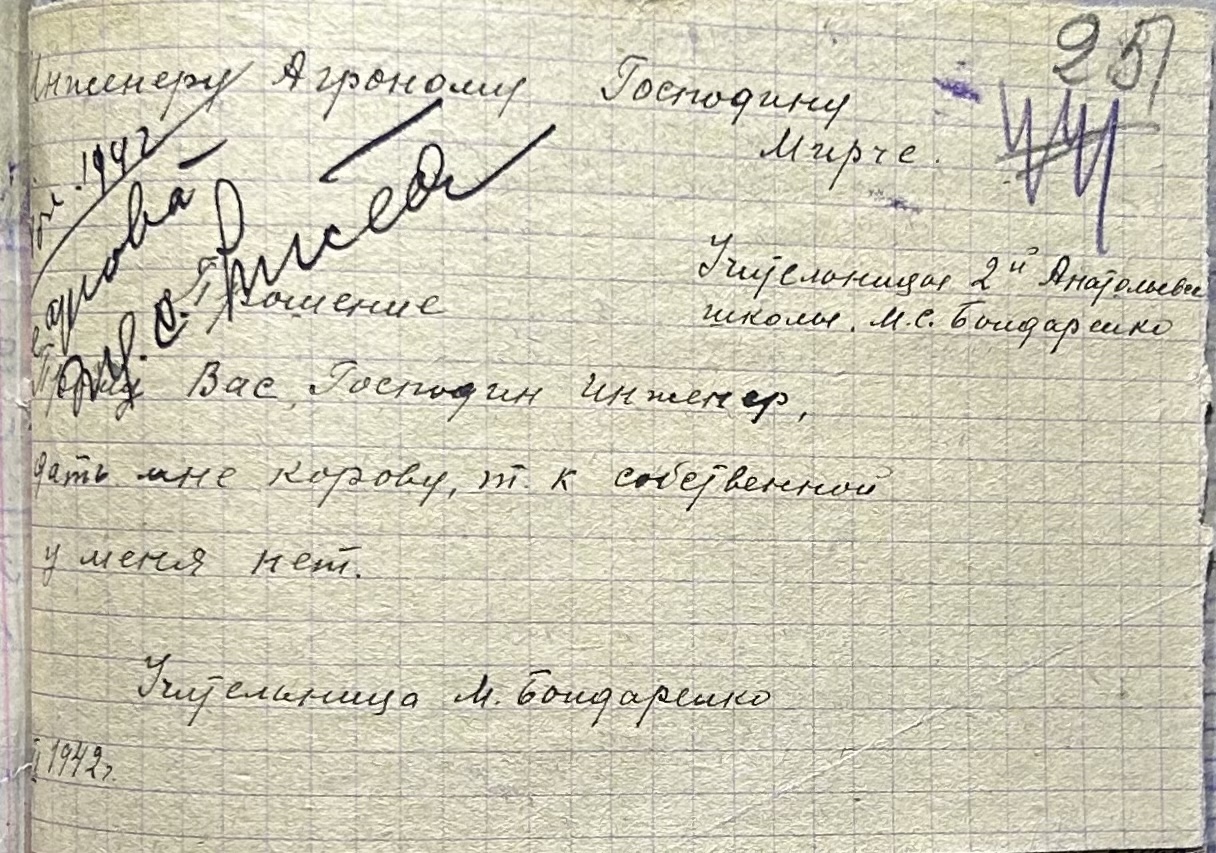 Инженеру Агроному Господину
Мирче.
251
1942
Учительницы 2й Анатольевс
школы. М.С. Бондаренко
Прошение
Прошу Вас, Господин Инженер,
дать мне корову, т. к собственной
у меня нет.
Учительница М. Бондаренко
1942г.